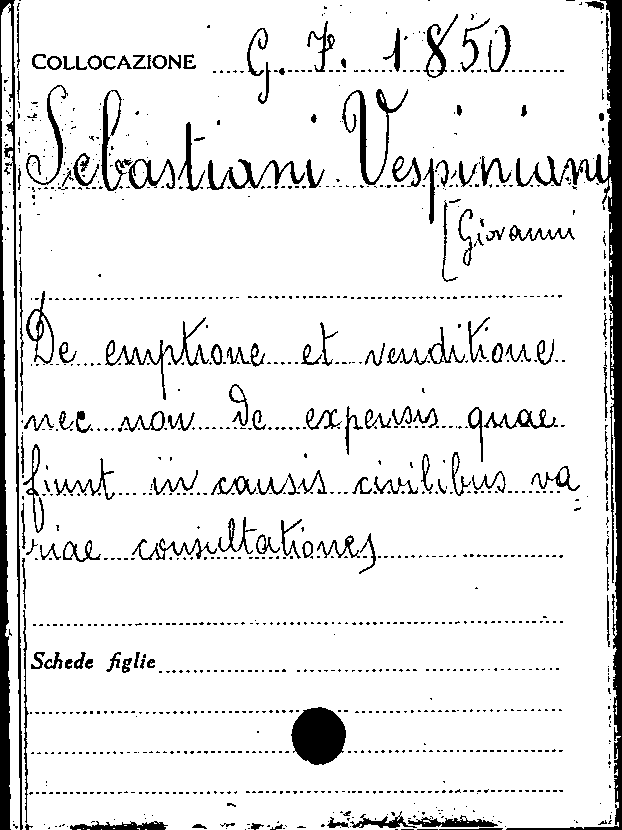 COLLOCAZIONE G. F. 1850
Sebastiani Vespiniani
[Giovanni
De emptione et venditione
nec non de expensis quae
fiunt in causis civilibus va=
riae consultationes
Schede figlie